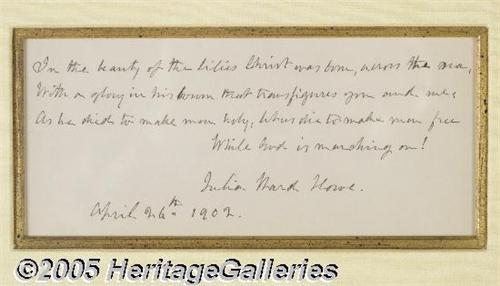 In the beauty of the lilies Christ was born, across the sea,
With a glory in his bosom that transfigures you and me;
As he died to make men holy, let us die to make men free
While God is marching on!
Julia Ward Howe.
April 26th 1902.
©2005 HeritageGalleries